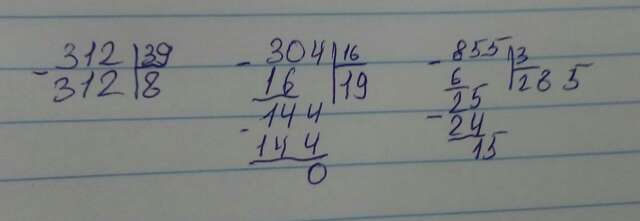 - 312 | 39
312 | 8
- 304 | 16
16 | 19
- 144
144
0
- 855 | 3
6 | 285
- 25
24
15